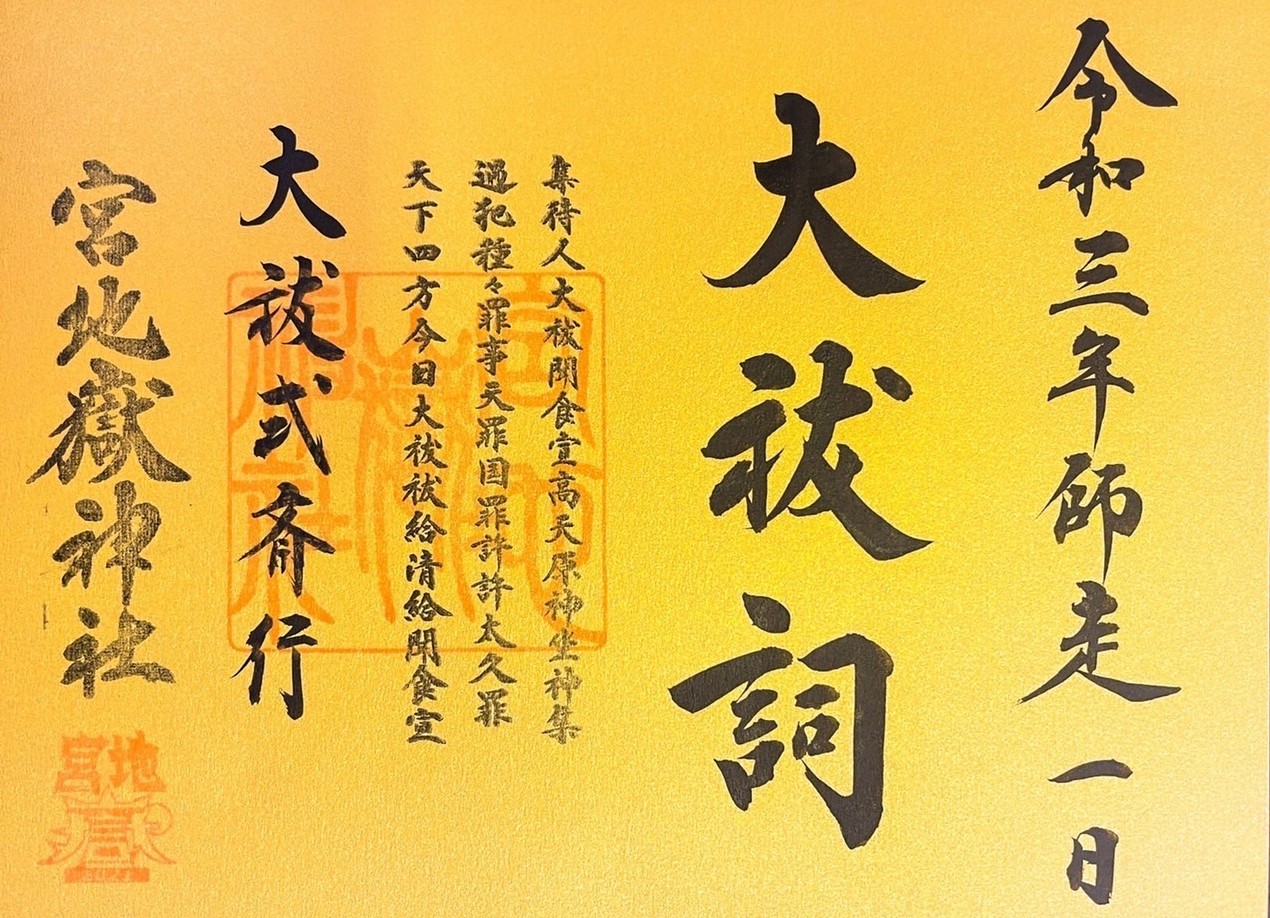 令和三年師走一日
大祓詞
集待人大祓聞食宣高天原神坐神集
過犯種々罪事天罪国罪許許太久罪
天下四方今日大祓祓給清給聞食宣
大祓式斎行
宮地嶽神社
宮地
嶽